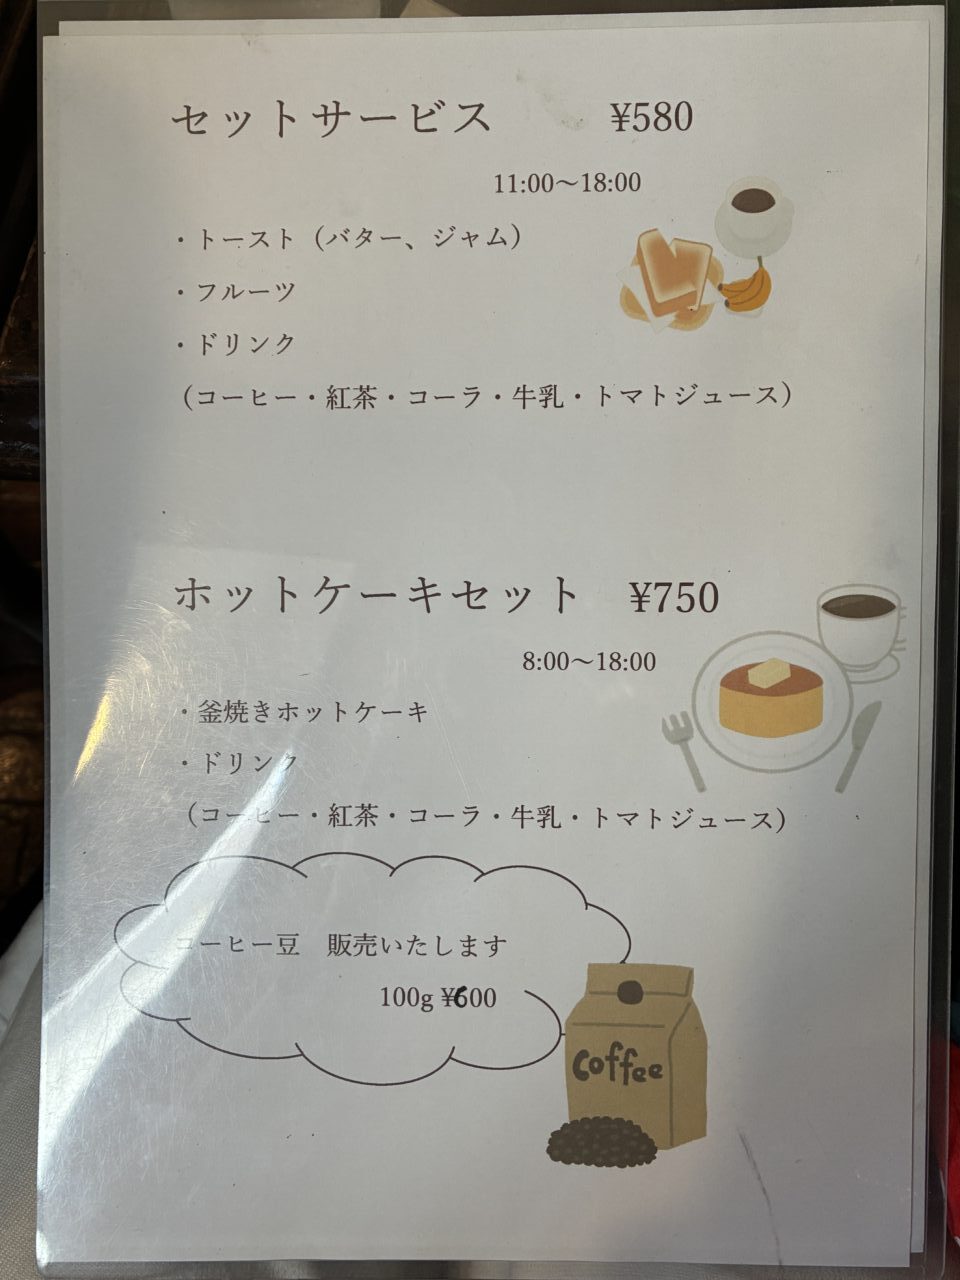 セットサービス ¥580
11:00〜18:00
・トースト（バター、ジャム）
・フルーツ
・ドリンク
（コーヒー・紅茶・コーラ・牛乳・トマトジュース）
ホットケーキセット ¥750
8:00〜18:00
・釜焼きホットケーキ
・ドリンク
（コーヒー・紅茶・コーラ・牛乳・トマトジュース）
コーヒー豆 販売いたします
100g ¥600
coffee